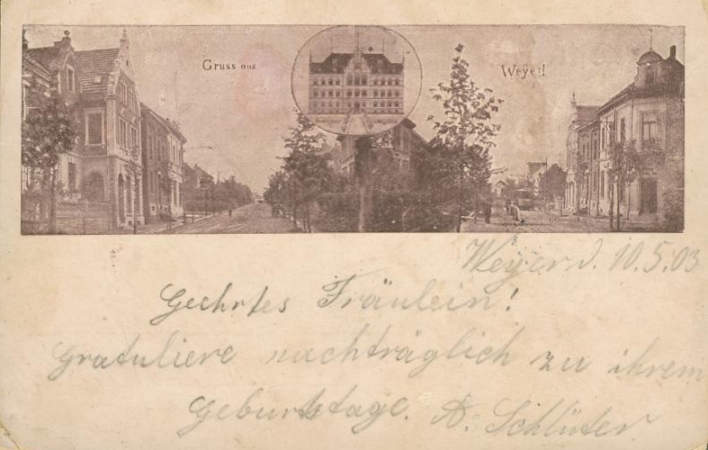 Gruss aus Weyer!
Weyer d. 10.5.03
Geehrtes Fräulein!
Gratuliere nachträglich zu ihrem
Geburtstage. A. Schlüter